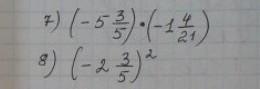 7) (-5 3/5)·(-1 4/21)
8) (-2 3/5)²